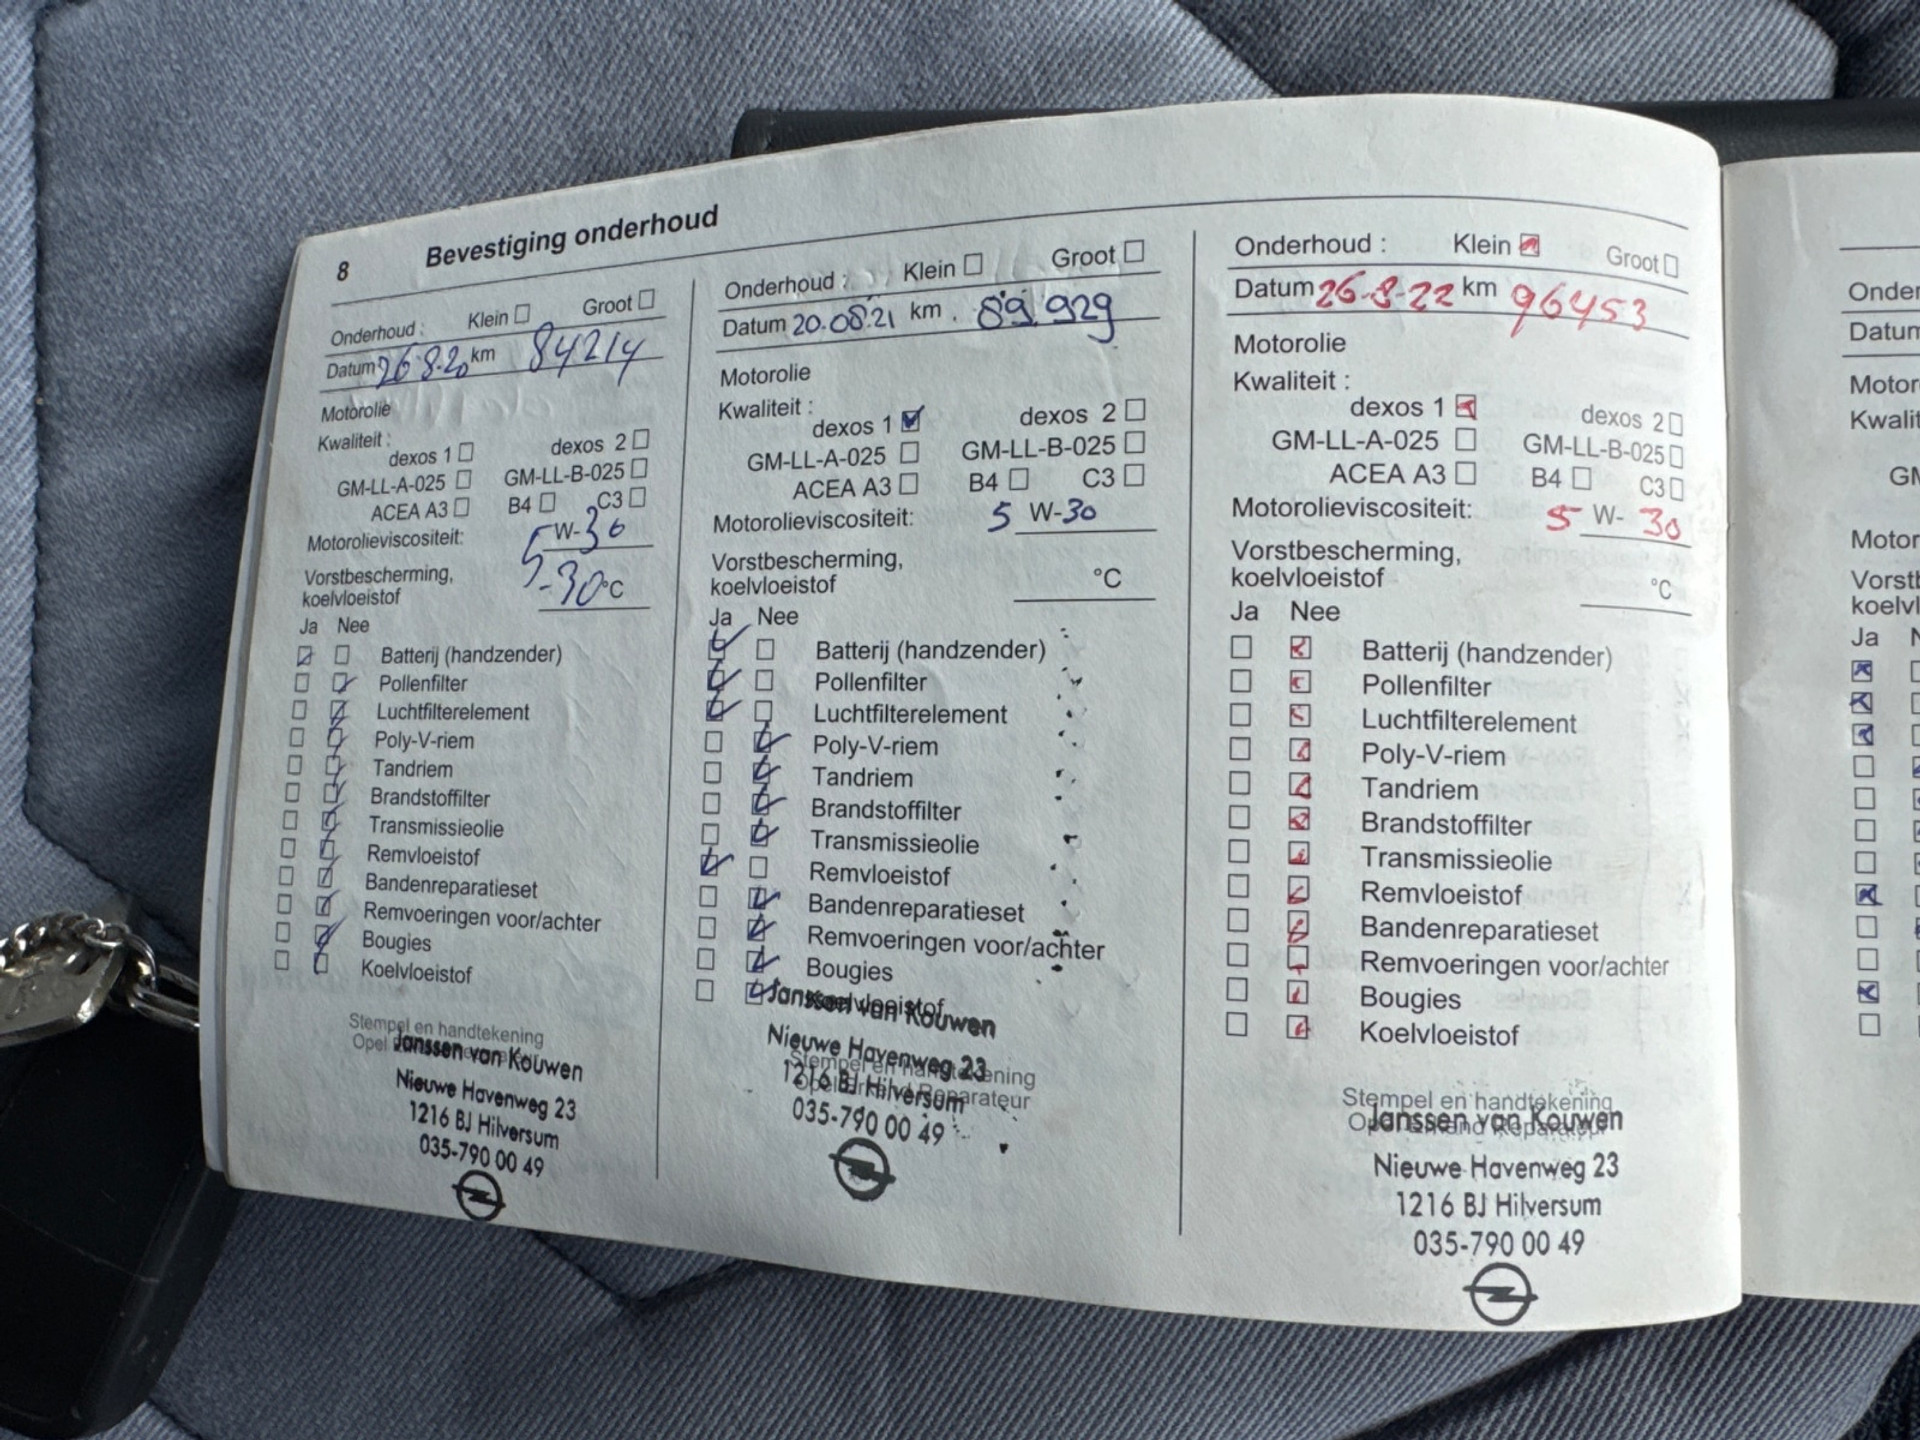 8 Bevestiging onderhoud
Onderhoud : Klein Groot
Datum 26 8.20 km 84214
Motorolie
Kwaliteit :
dexos 1 dexos 2
GM-LL-A-025 GM-LL-B-025
ACEA A3 B4 C3
Motorolieviscositeit: 5 W-30
Vorstbescherming,
koelvloeistof -30 °C
Ja Nee
Batterij (handzender)
Pollenfilter
Luchtfilterelement
Poly-V-riem
Tandriem
Brandstoffilter
Transmissieolie
Remvloeistof
Bandenreparatieset
Remvoeringen voor/achter
Bougies
Koelvloeistof
Stempel en handtekening
Opel
Janssen van Kouwen
Nieuwe Havenweg 23
1216 BJ Hilversum
035-790 00 49
Onderhoud : Klein Groot
Datum 20.08.21 km . 89.929
Motorolie
Kwaliteit :
dexos 1 dexos 2
GM-LL-A-025 GM-LL-B-025
ACEA A3 B4 C3
Motorolieviscositeit: 5 W-30
Vorstbescherming,
koelvloeistof °C
Ja Nee
Batterij (handzender)
Pollenfilter
Luchtfilterelement
Poly-V-riem
Tandriem
Brandstoffilter
Transmissieolie
Remvloeistof
Bandenreparatieset
Remvoeringen voor/achter
Bougies
Koelvloeistof
Janssen van Kouwen
Nieuwe Havenweg 23
Stempel en handtekening
1216 BJ Hilversum
Opel Erkend Reparateur
035-790 00 49
Onderhoud : Klein Groot
Datum 26-8-22 km 96453
Motorolie
Kwaliteit :
dexos 1 dexos 2
GM-LL-A-025 GM-LL-B-025
ACEA A3 B4 C3
Motorolieviscositeit: 5 W- 30
Vorstbescherming,
koelvloeistof °C
Ja Nee
Batterij (handzender)
Pollenfilter
Luchtfilterelement
Poly-V-riem
Tandriem
Brandstoffilter
Transmissieolie
Remvloeistof
Bandenreparatieset
Remvoeringen voor/achter
Bougies
Koelvloeistof
Stempel en handtekening
Opel Erkend Reparateur
Janssen van Kouwen
Nieuwe Havenweg 23
1216 BJ Hilversum
035-790 00 49
Onder
Datum
Motor
Kwalit
GM
Motor
Vorstb
koelvl
Ja N